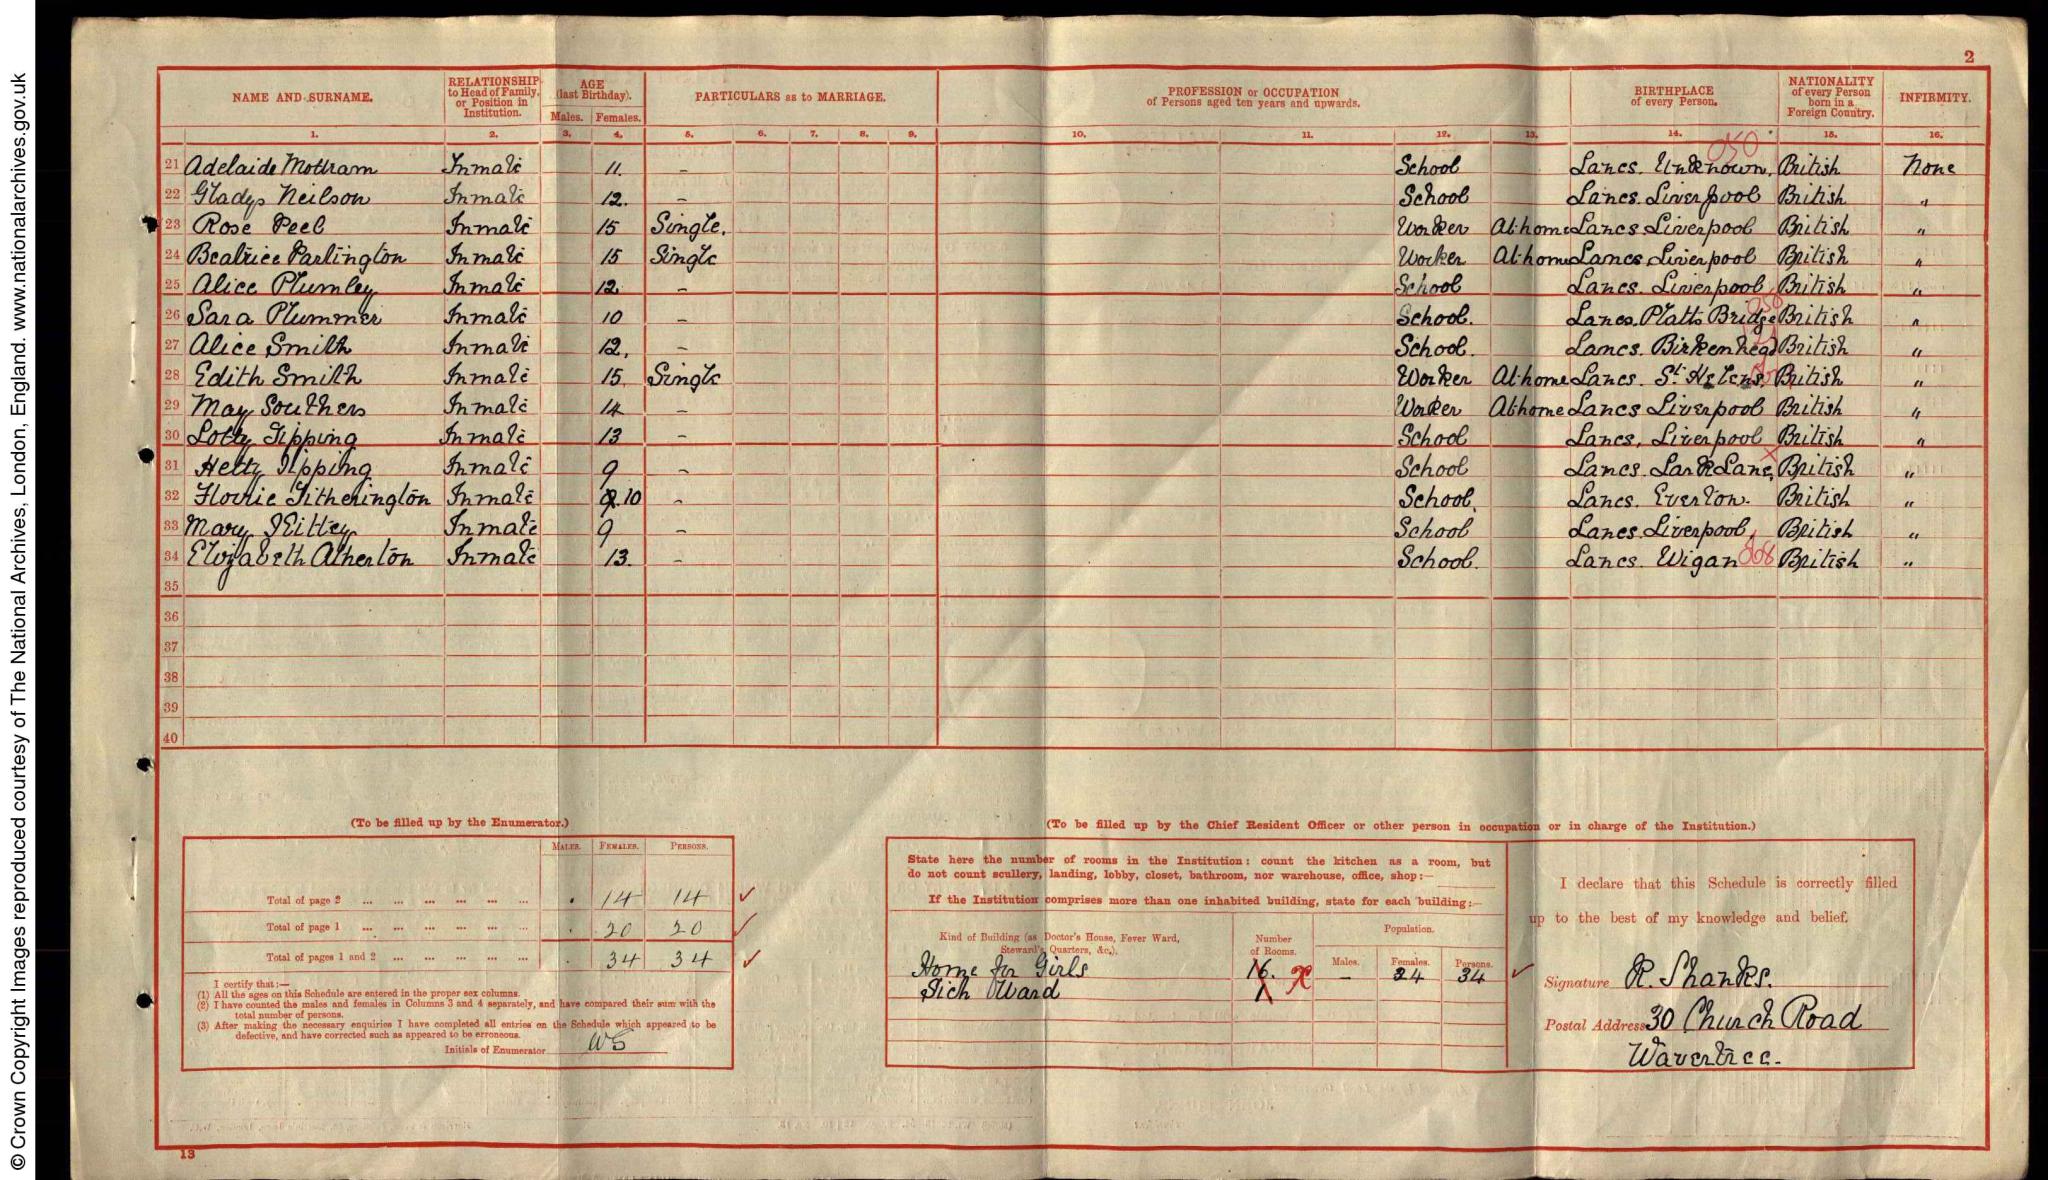 2
NAME AND SURNAME. RELATIONSHIP to Head of Family, or Position in Institution. AGE (last Birthday). Males. Females. PARTICULARS as to MARRIAGE. PROFESSION or OCCUPATION of Persons aged ten years and upwards. BIRTHPLACE of every Person. NATIONALITY of every Person born in a Foreign Country. INFIRMITY.
1. 2. 3. 4. 5. 6. 7. 8. 9. 10. 11. 12. 13. 14. 15. 16.
050
21 Adelaide Mottram Inmate 11. – School Lancs. Unknown. British None
22 Gladys Neilson Inmate 12. – School Lancs. Liverpool British "
23 Rose Peel Inmate 15 Single. Worker At home Lancs Liverpool British "
24 Beatrice Partington Inmate 15 Single Worker At home Lancs Liverpool British "
25 Alice Plumley Inmate 12 – School Lancs. Liverpool British "
26 Sara Plummer Inmate 10 – School. Lancs. Platts Bridge British "
27 Alice Smith Inmate 12. – School. Lancs. Birkenhead British "
28 Edith Smith Inmate 15. Single Worker At home Lancs. St. Helens. British "
29 May Southers Inmate 14 – Worker At home Lancs Liverpool British "
30 Lotty Tipping Inmate 13 – School Lancs. Liverpool British "
31 Hetty Tipping Inmate 9 – School Lancs. Lark Lane, British "
32 Florrie Titherington Inmate 10 – School. Lancs. Everton. British "
33 Mary Inmate 9 – School Lancs. Liverpool, British "
34 Elizabeth Atherton Inmate 13. – School. Lancs. Wigan 068 British "
35
36
37
38
39
40
(To be filled up by the Enumerator.)
Males. Females. Persons.
Total of page 2 ... ... ... ... ... ... . 14 14
Total of page 1 ... ... ... ... ... ... . 20 20
Total of pages 1 and 2 ... ... ... ... ... . 34 34
I certify that:—
(1) All the ages on this Schedule are entered in the proper sex columns.
(2) I have counted the males and females in Columns 3 and 4 separately, and have compared their sum with the
total number of persons.
(3) After making the necessary enquiries I have completed all entries on the Schedule which appeared to be
defective, and have corrected such as appeared to be erroneous.
Initials of Enumerator WS
(To be filled up by the Chief Resident Officer or other person in occupation or in charge of the Institution.)
State here the number of rooms in the Institution: count the kitchen as a room, but
do not count scullery, landing, lobby, closet, bathroom, nor warehouse, office, shop:—
If the Institution comprises more than one inhabited building, state for each building:—
Kind of Building (as Doctor's House, Fever Ward, Steward's Quarters, &c.). Number of Rooms. Population. Males. Females. Persons.
Home for Girls 16. – 34 34
Sick Ward 1
I declare that this Schedule is correctly filled
up to the best of my knowledge and belief.
Signature R. Shanks.
Postal Address 30 Church Road
Wavertree.
13
© Crown Copyright Images reproduced courtesy of The National Archives, London, England. www.nationalarchives.gov.uk